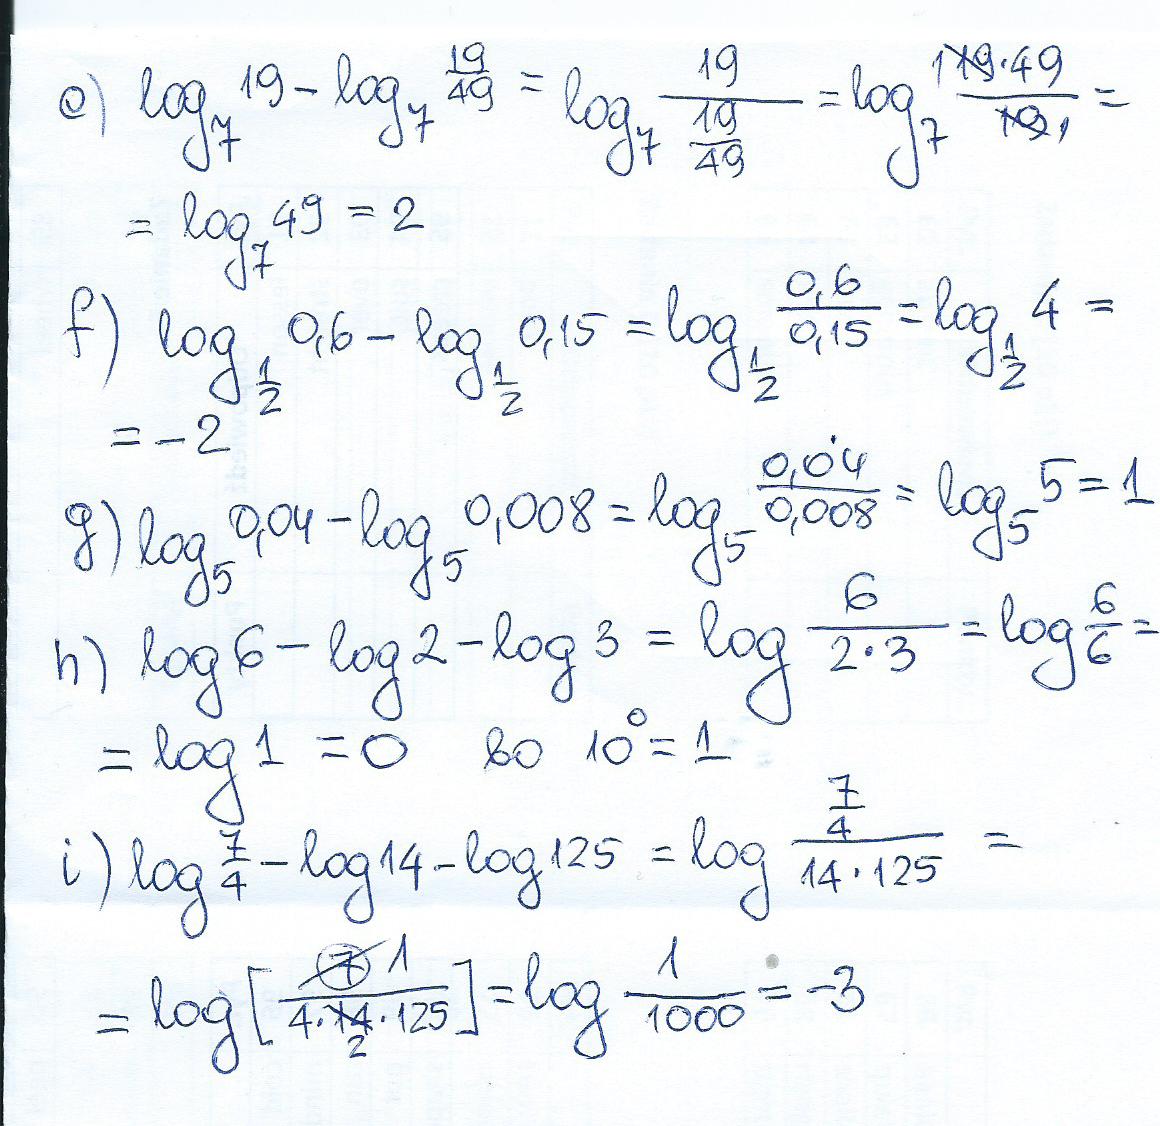 e) log₇ 19 - log₇ 19/49 = log₇ 19/(19/49) = log₇ (19·49)/19 =
= log₇ 49 = 2
f) log_{1/2} 0,6 - log_{1/2} 0,15 = log_{1/2} 0,6/0,15 = log_{1/2} 4 =
= -2
g) log₅ 0,04 - log₅ 0,008 = log₅ 0,04/0,008 = log₅ 5 = 1
h) log 6 - log 2 - log 3 = log 6/(2·3) = log 6/6 =
= log 1 = 0 bo 10⁰ = 1
i) log 7/4 - log 14 - log 125 = log (7/4)/(14·125) =
= log [7 1/(4·14 2·125)] = log 1/1000 = -3